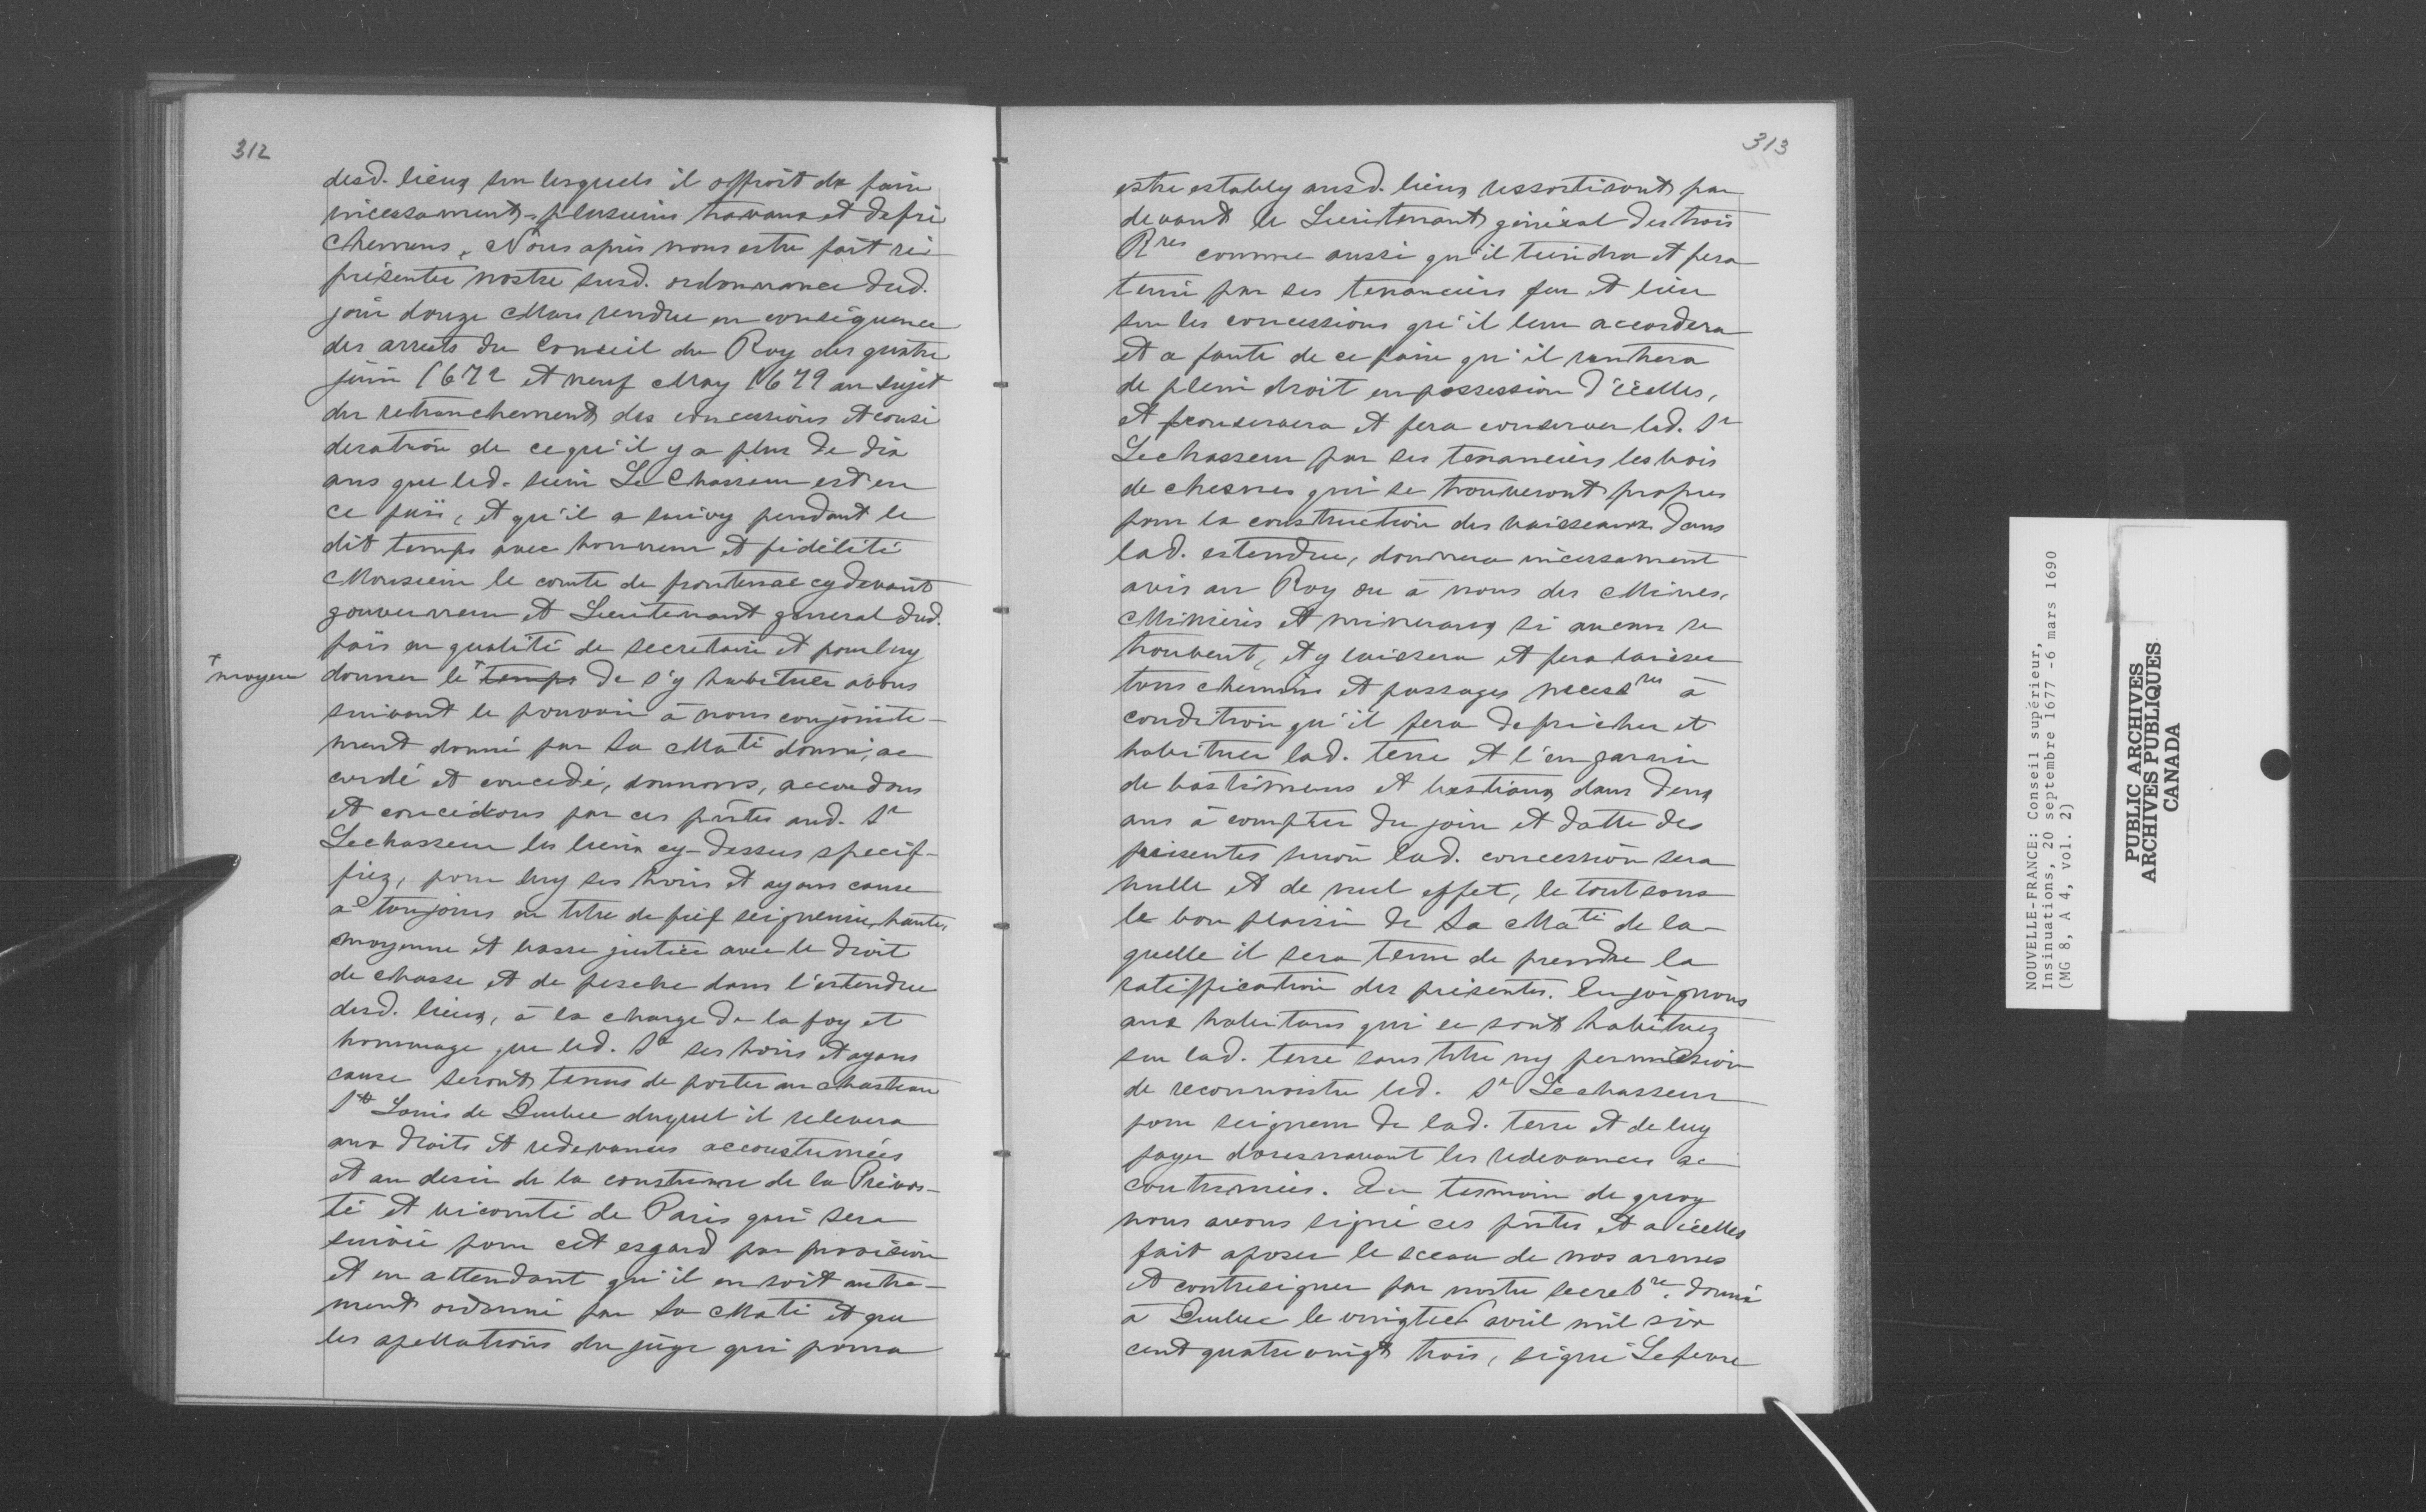 312
desd. lieux sur lesquels il offroit de faire
incessament plusieurs travaux et defri
chemens, Nous après nous estre fait re
présenter nostre susd. ordonnance dud.
jour douze Mars rendue en conséquence
des arrests du Conseil du Roy des quatre
juin 1672 et neuf May 1679 au sujet
du retranchement des concessions et consi
deration de ce qu'il y a plus de dix
ans que led. sieur Le Chasseur est en
ce païs, et qu'il a suivy pendant le
dit temps avec honneur et fidélité
Monsieur le comte de frontenac cy devant
gouverneur et Lieutenant general dud.
païs en qualité de secretaire et pour luy
+ moyen
donner le + temps de s'y habituer avons
suivant le pouvoir à nous conjointe-
ment donné par Sa Maté donné, ac
cordé et concedé, donnons, accordons
et concedons par ces pntes aud. Sr
Lechasseur les lieux cy-dessus specif-
fiez, pour luy ses hoirs et ayans cause
à toujours en titre de fief seigneurie, haute,
moyenne et basse justice avec le droit
de chasse et de pesche dans l'estendue
desd. lieux, à la charge de la foy et
hommage que led. Sr ses hoirs et ayans
cause seront tenus de porter au chasteau
St Louis de Quebec duquel il relevera
aux droits et redevances accoustumées
et au desir de la coustume de la Prevos-
té et vicomté de Paris qui sera
suivie pour cet esgard par provision
et en attendant qu'il en soit autre-
ment ordonné par Sa Maté et que
les apellations du juge qui poura
313
estre estably ausd. lieux ressortiront par
devant le Lieutenant général des trois
Rres comme aussi qu'il tiendra et fera
tenir par ses tenanciers feu et lieu
sur les concessions qu'il leur accordera
et a faute de ce faire qu'il rentrera
de plein droit en possession d'icelles,
et conservera et fera conserver led. Sr
Lechasseur par ses tenanciers les bois
de chesnes qui se trouveront propres
pour la construction des vaisseaux dans
lad. estendue, donnera incessament
avis au Roy ou à nous des Mines,
Minieres et mineraux si aucuns se
trouvent, et y laissera et fera laisser
tous chemins et passages necessres à
condition qu'il fera defricher et
habituer lad. terre et l'en garnir
de bastimens et bestiaux dans deux
ans à compter du jour et datte des
présentes sinon lad. concession sera
nulle et de nul effet, le tout sous
le bon plaisir de Sa Maté de la-
quelle il sera tenu de prendre la
ratiffication des présentes. Enjoignons
aux habitans qui se sont habituez
sur lad. terre sans titre ny permission
de reconnoistre led. Sr Lechasseur
pour seigneur de lad. terre et de luy
payer doresnavant les redevances ac
coutumées. En tesmoin de quoy
nous avons signé ces pntes et a icelles
fait aposer le sceau de nos armes
et contresigner par nostre secretre. donné
à Quebec le vingtief avril mil six
cent quatre vingt trois, signé Lefevre
NOUVELLE-FRANCE: Conseil supérieur,
Insinuations, 20 septembre 1677 -6 mars 1690
(MG 8, A 4, vol. 2)
PUBLIC ARCHIVES
ARCHIVES PUBLIQUES
CANADA